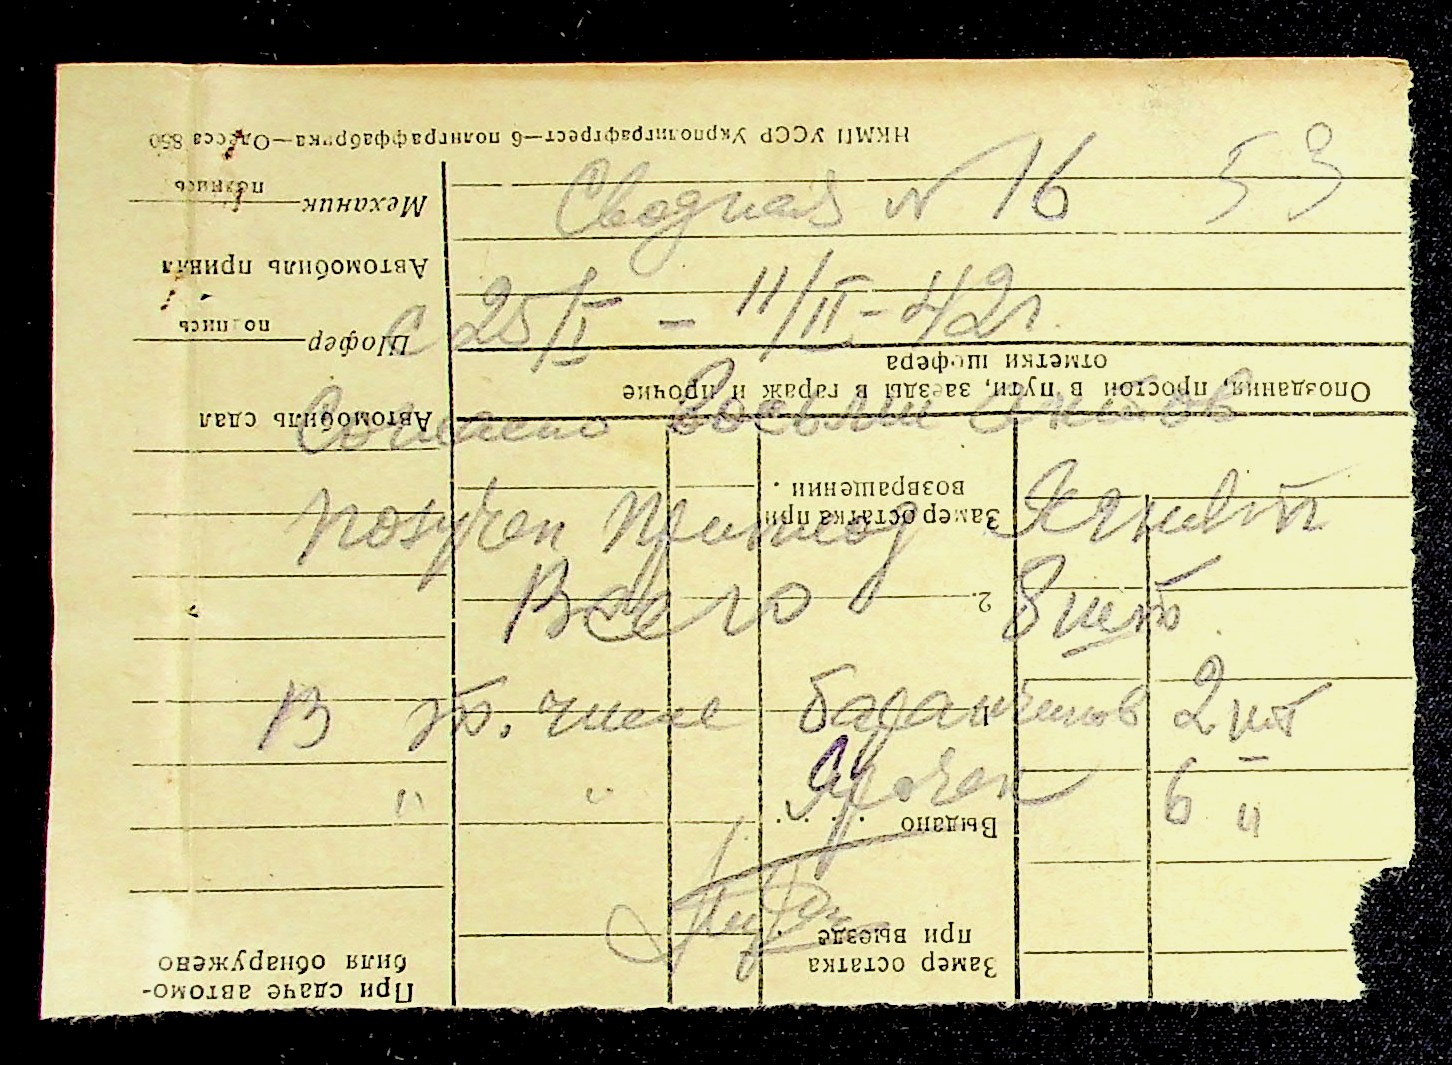 Сводная № 16 53
С 25/I – 11/II – 42 г.
Согласно восьми актов
получен приплод ягнят
Всего 8 шт
В т. числе баранчиков 2 шт
" " Ярочек 6 "
НКМП УССР Укрполиграфтрест—6 полиграффабрика—Одесса 850
Механик
подпись
Автомобиль принял
Шофер
подпись
Автомобиль сдал
При сдаче автомо-
биля обнаружено
Опоздания, простои в пути, заезды в гараж и прочие
отметки шофера
Замер остатка
при выезде
Выдано
1
2.
Замер остатка при
возвращении